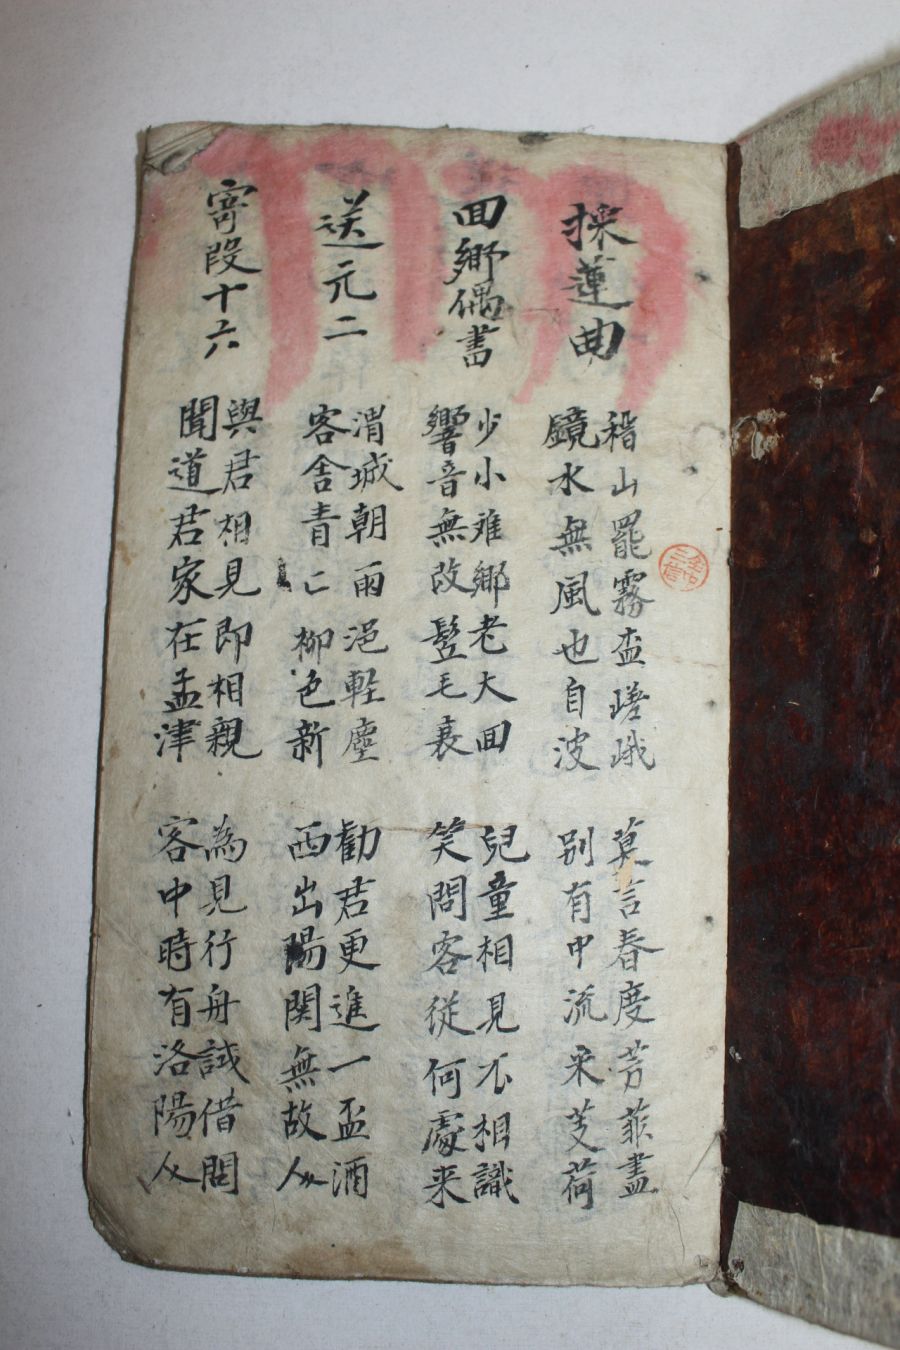 採蓮曲
稽山罷霧盃嵯峨
鏡水無風也自波
莫言春度芳菲盡
別有中流采芰荷
回鄉偶書
少小难鄉老大回
響音無改髩毛衰
兒童相見不相識
笑問客從何處来
送元二
渭城朝雨浥輊塵
客舍青〻柳色新
勸君更進一盃酒
西出陽関無故人
寄段十六
與君相見即相親
聞道君家在孟津
為見行舟試借問
客中時有洛陽人